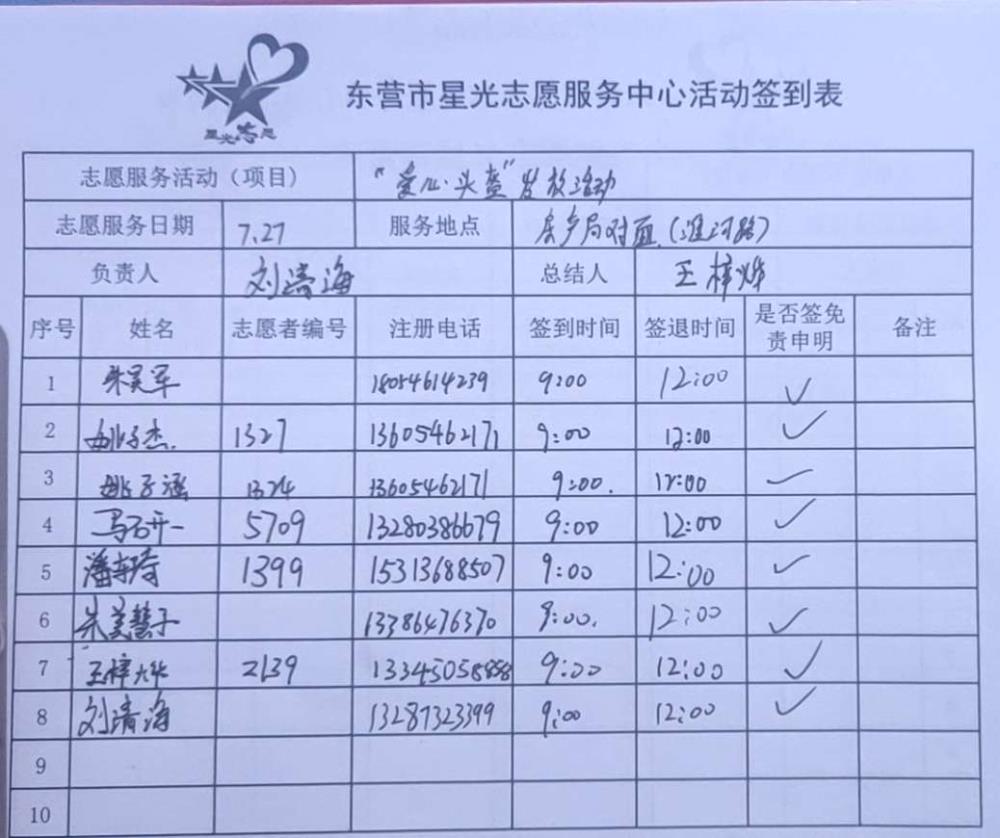 星光志愿
东营市星光志愿服务中心活动签到表
志愿服务活动（项目） “爱心·头盔”发放活动
志愿服务日期 7.27 服务地点 东乡局对面(淮河路)
负责人 刘清海 总结人 王梓烨
序号 姓名 志愿者编号 注册电话 签到时间 签退时间 是否签免责申明 备注
1 朱昊军 18054614239 9:00 12:00 ✓
2 姚子杰. 1327 13605462171 9:00 12:00 ✓
3 姚子涵 1324 13605462171 9:00. 12:00 ✓
4 马开一 5709 13280386679 9:00 12:00 ✓
5 潘 琦 1399 15313688507 9:00 12:00 ✓
6 朱美慧子 13386476370 9:00. 12:00 ✓
7 王梓烨 2139 13345058858 9:00 12:00 ✓
8 刘清海 13287323399 9:00 12:00 ✓
9
10